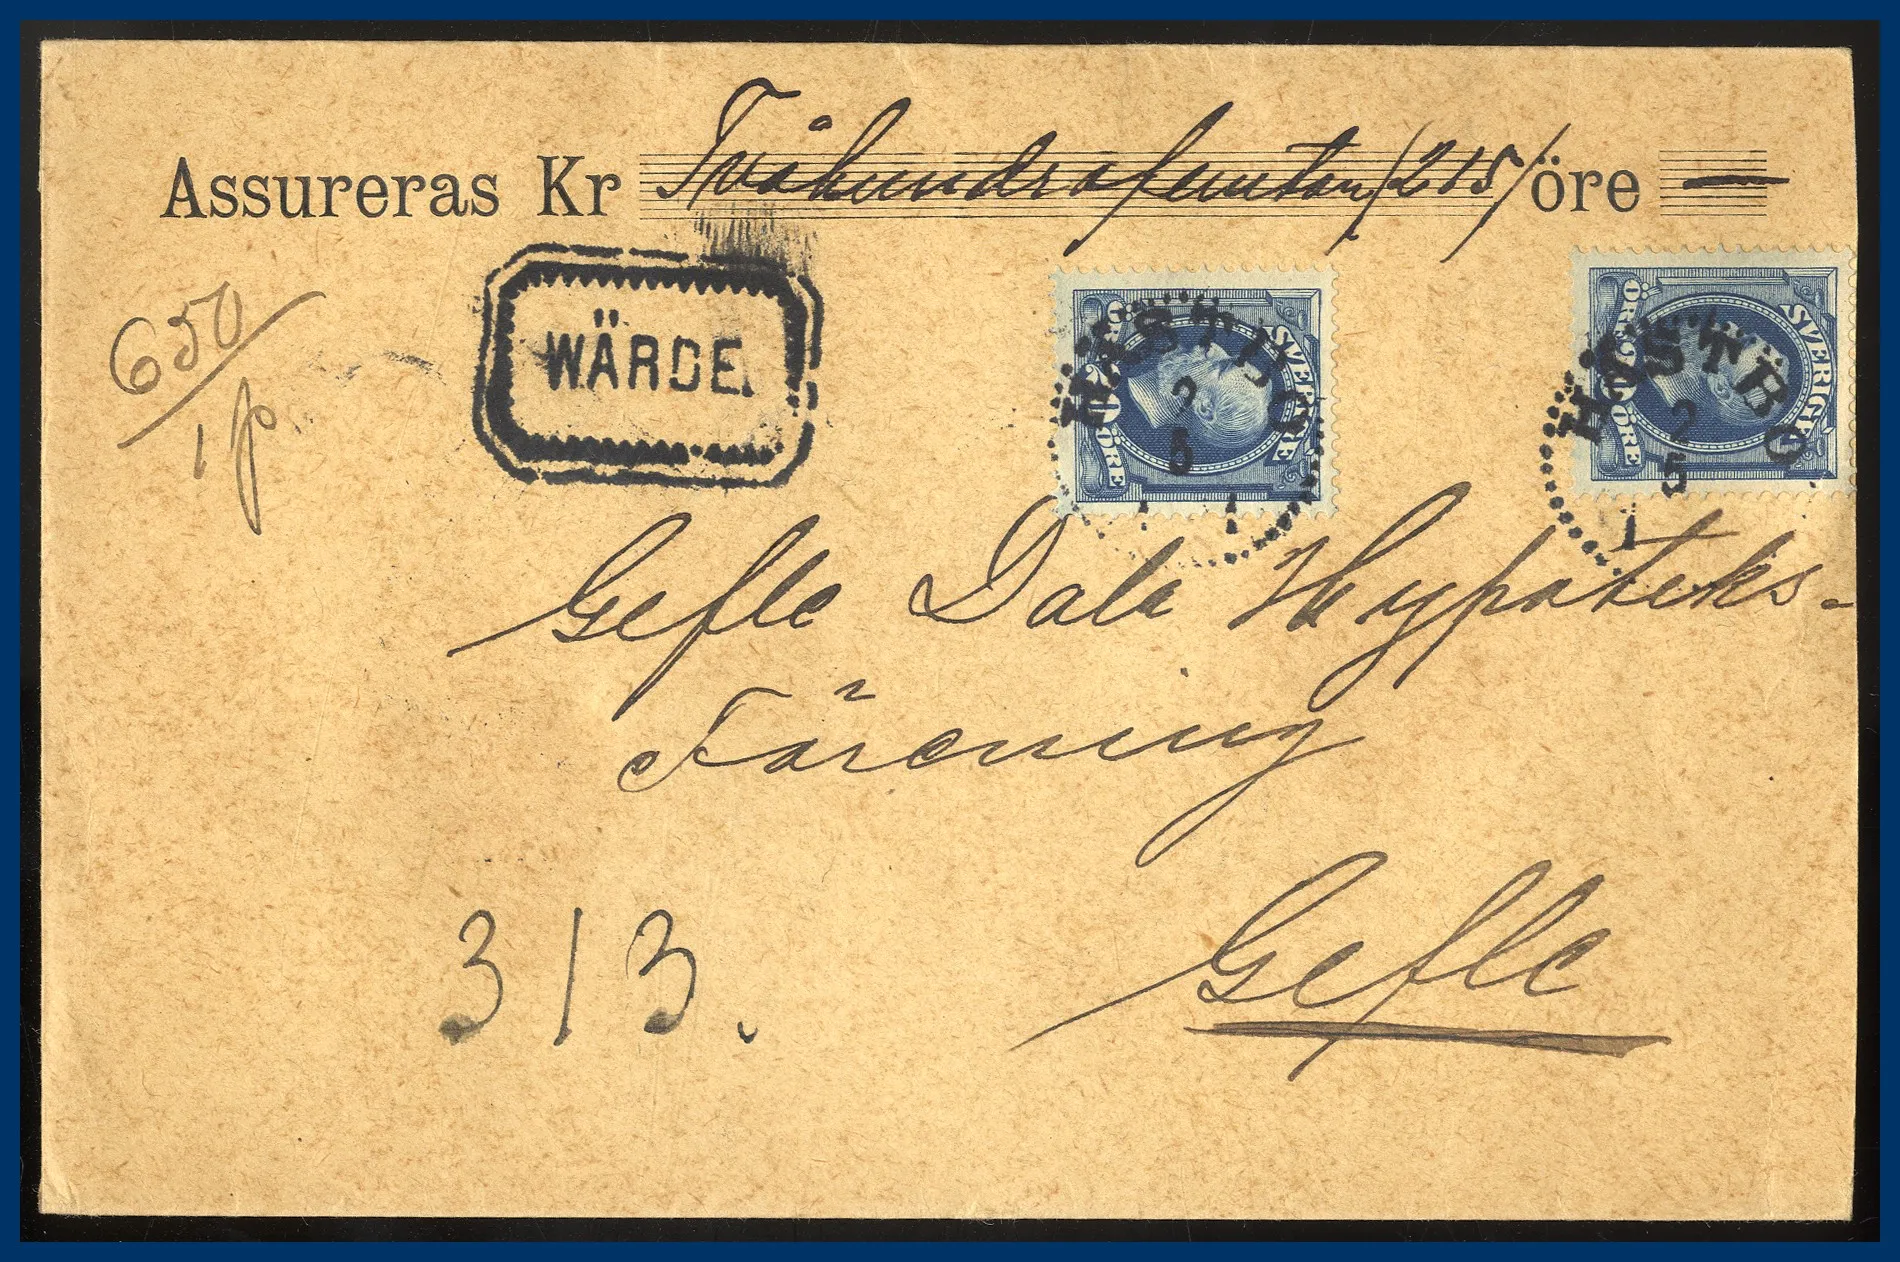 Assureras Kr Tvåhundrafemton /215/ öre —
650
1 p.
WÄRDE.
SVERIGE 20 ÖRE ÖRE
HÄSTBO
2
5
SVERIGE 20 ÖRE ÖRE
HÄSTBO
2
5
1
Gefle Dala Hypoteks-
Förening
Gefle
313.